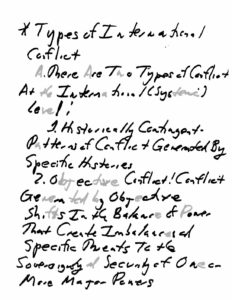 * Types of International
Conflict
A. There Are Two Types of Conflict
At the International (Systemic)
level:
1. Historically Contingent -
Patterns of Conflict Generated By
Specific Histories
2. Objective Conflict: Conflict
Generated by Objective
Shifts In the Balance of Power
That Create Imbalances
Specific To the
Sovereignty Security of One or
More Major Powers